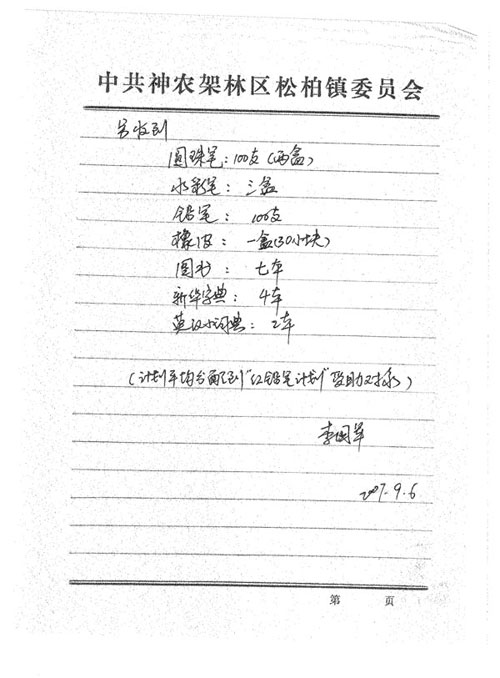 中共神农架林区松柏镇委员会
另收到
圆珠笔：100支（两盒）
水彩笔：三盒
铅笔：100支
橡皮：一盒（30小块）
图书：七本
新华字典：4本
英汉小词典：2本
（计划平均分配到"红铅笔计划"受助对象）
李国军
2007.9.6
第 页